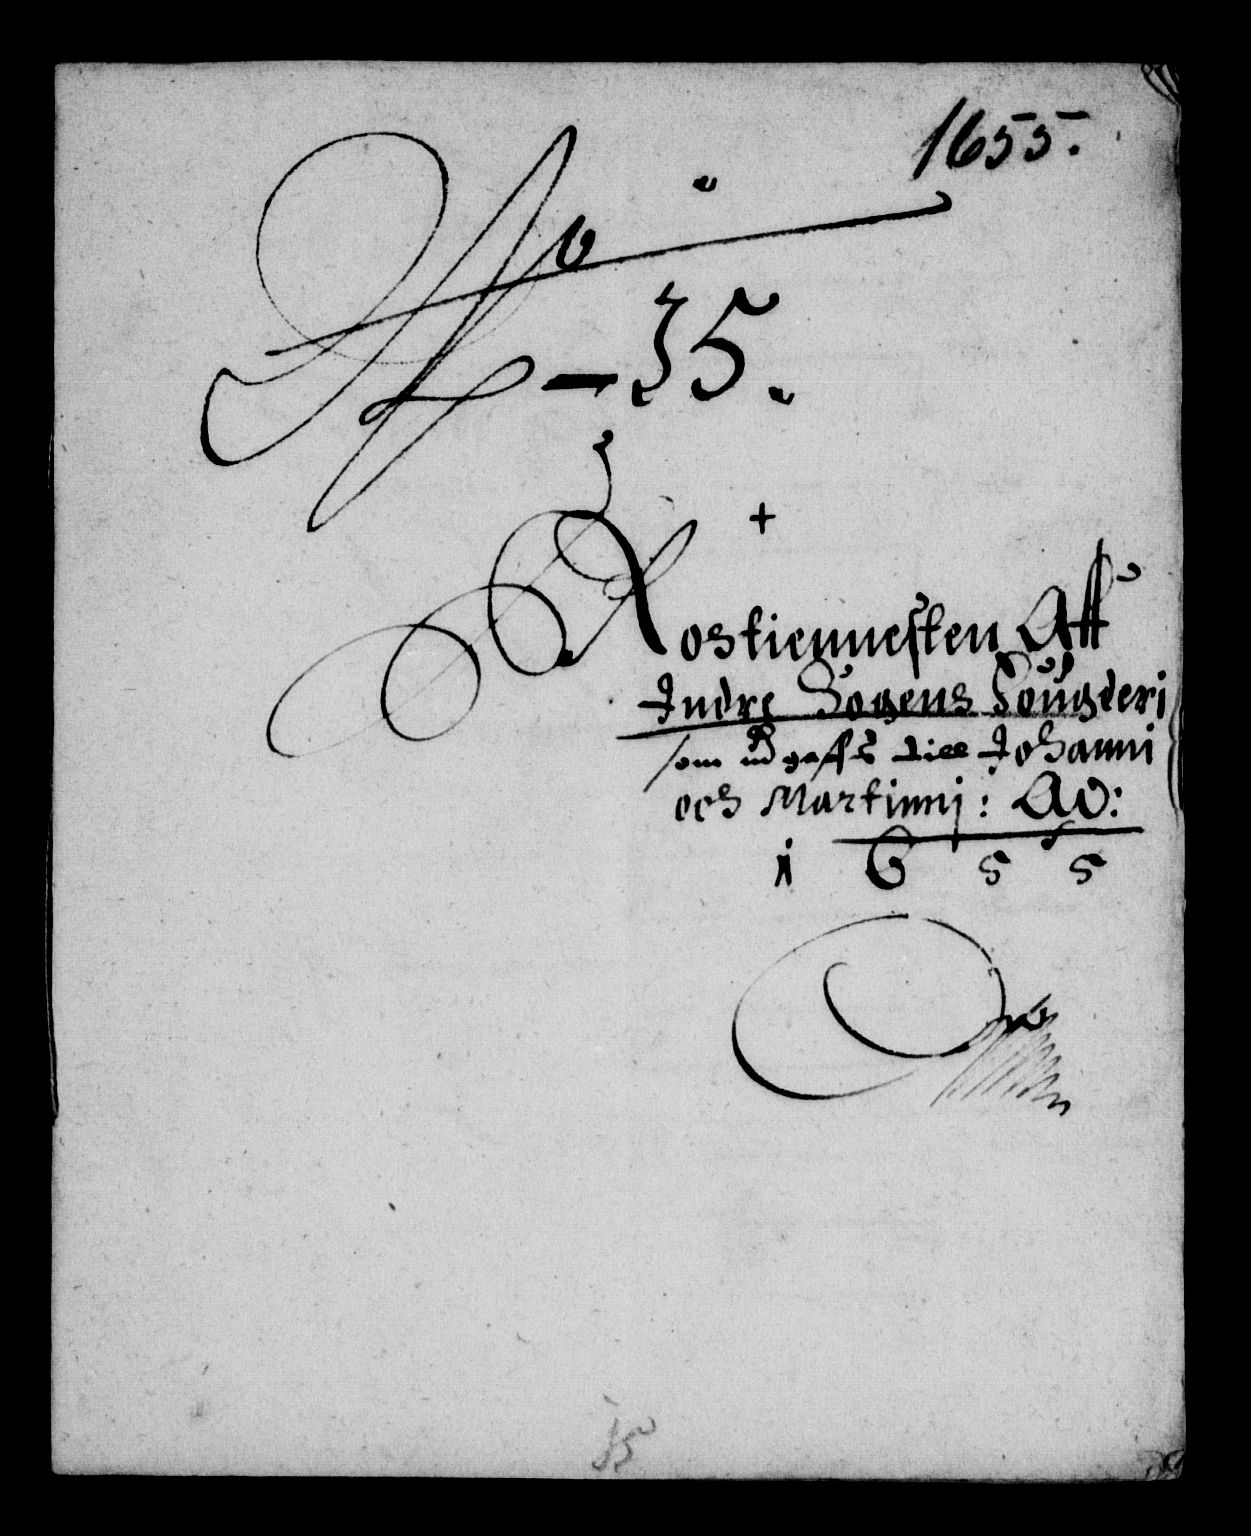 1655.
No
– 35.
Rostiennesten Aff
Indre Sogens Fougderi
som udgaffs till Johanni
och Martinni: AO:
1 6 5 5
35